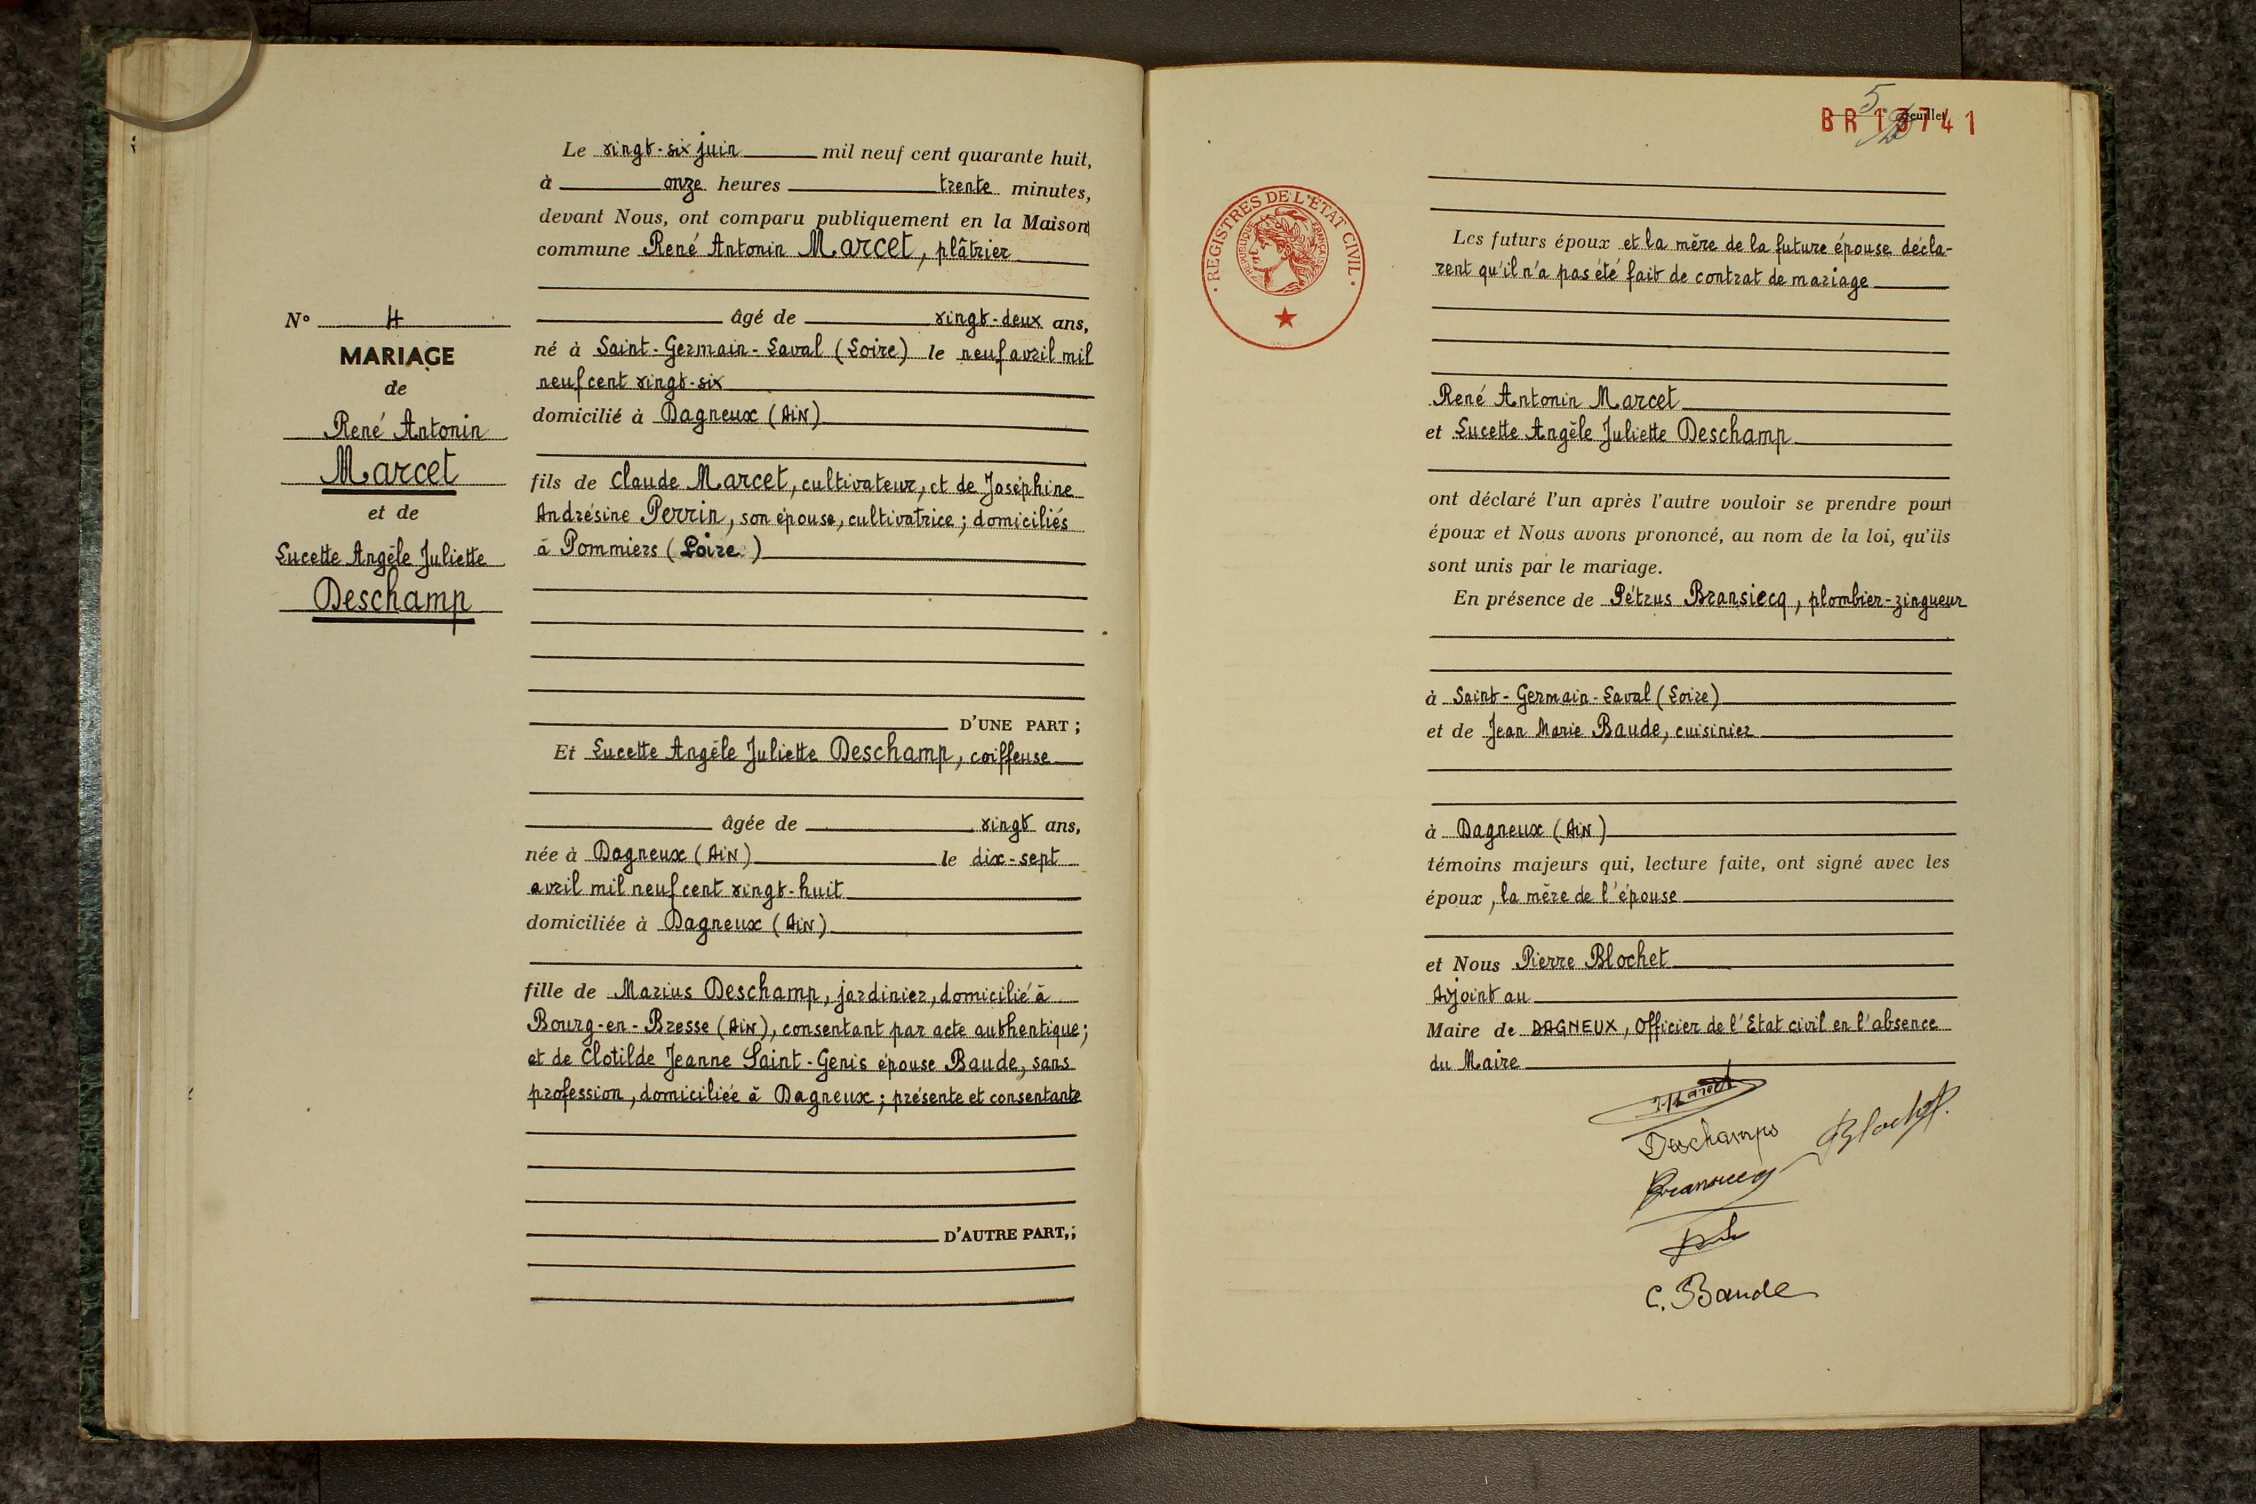 Le vingt-six juin mil neuf cent quarante huit,
à onze heures trente minutes,
devant Nous, ont comparu publiquement en la Maison
commune René Antonin Marcet, plâtrier
âgé de vingt-deux ans,
né à Saint-Germain-Laval (Loire) le neuf avril mil
neuf cent vingt-six
domicilié à Dagneux (Ain)
fils de Claude Marcet, cultivateur, et de Joséphine
Andrésine Perrin, son épouse, cultivatrice ; domiciliés
à Pommiers (Loire)
D'UNE PART ;
Et Lucette Angèle Juliette Deschamp, coiffeuse
âgée de vingt ans,
née à Dagneux (Ain) le dix-sept
avril mil neuf cent vingt-huit
domiciliée à Dagneux (Ain)
fille de Marius Deschamp, jardinier, domicilié à
Bourg-en-Bresse (Ain), consentant par acte authentique ;
et de Clotilde Jeanne Saint-Genis épouse Baude, sans
profession, domiciliée à Dagneux ; présente et consentante
D'AUTRE PART, ;
N° 4
MARIAGE
de
René Antonin
Marcet
et de
Lucette Angèle Juliette
Deschamp
5
BR13741
feuillet
REGISTRES DE L'ÉTAT CIVIL
RÉPUBLIQUE FRANÇAISE
Les futurs époux et la mère de la future épouse décla-
rent qu'il n'a pas été fait de contrat de mariage
René Antonin Marcet
et Lucette Angèle Juliette Deschamp
ont déclaré l'un après l'autre vouloir se prendre pour
époux et Nous avons prononcé, au nom de la loi, qu'ils
sont unis par le mariage.
En présence de Pétrus Bransiecq, plombier-zingueur
à Saint-Germain-Laval (Loire)
et de Jean Marie Baude, cuisinier
à Dagneux (Ain)
témoins majeurs qui, lecture faite, ont signé avec les
époux, la mère de l'épouse
et Nous Pierre Blochet
Adjoint au
Maire de DAGNEUX, Officier de l'Etat civil en l'absence
du Maire
Deschamps
Blochet
Bransiecq
C. Baude